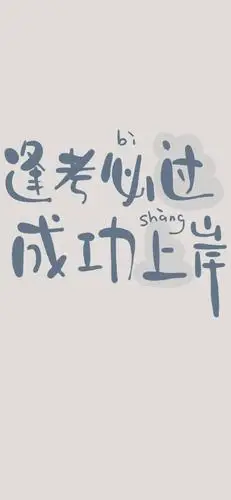 bì
逢考必过
shàng
成功上岸